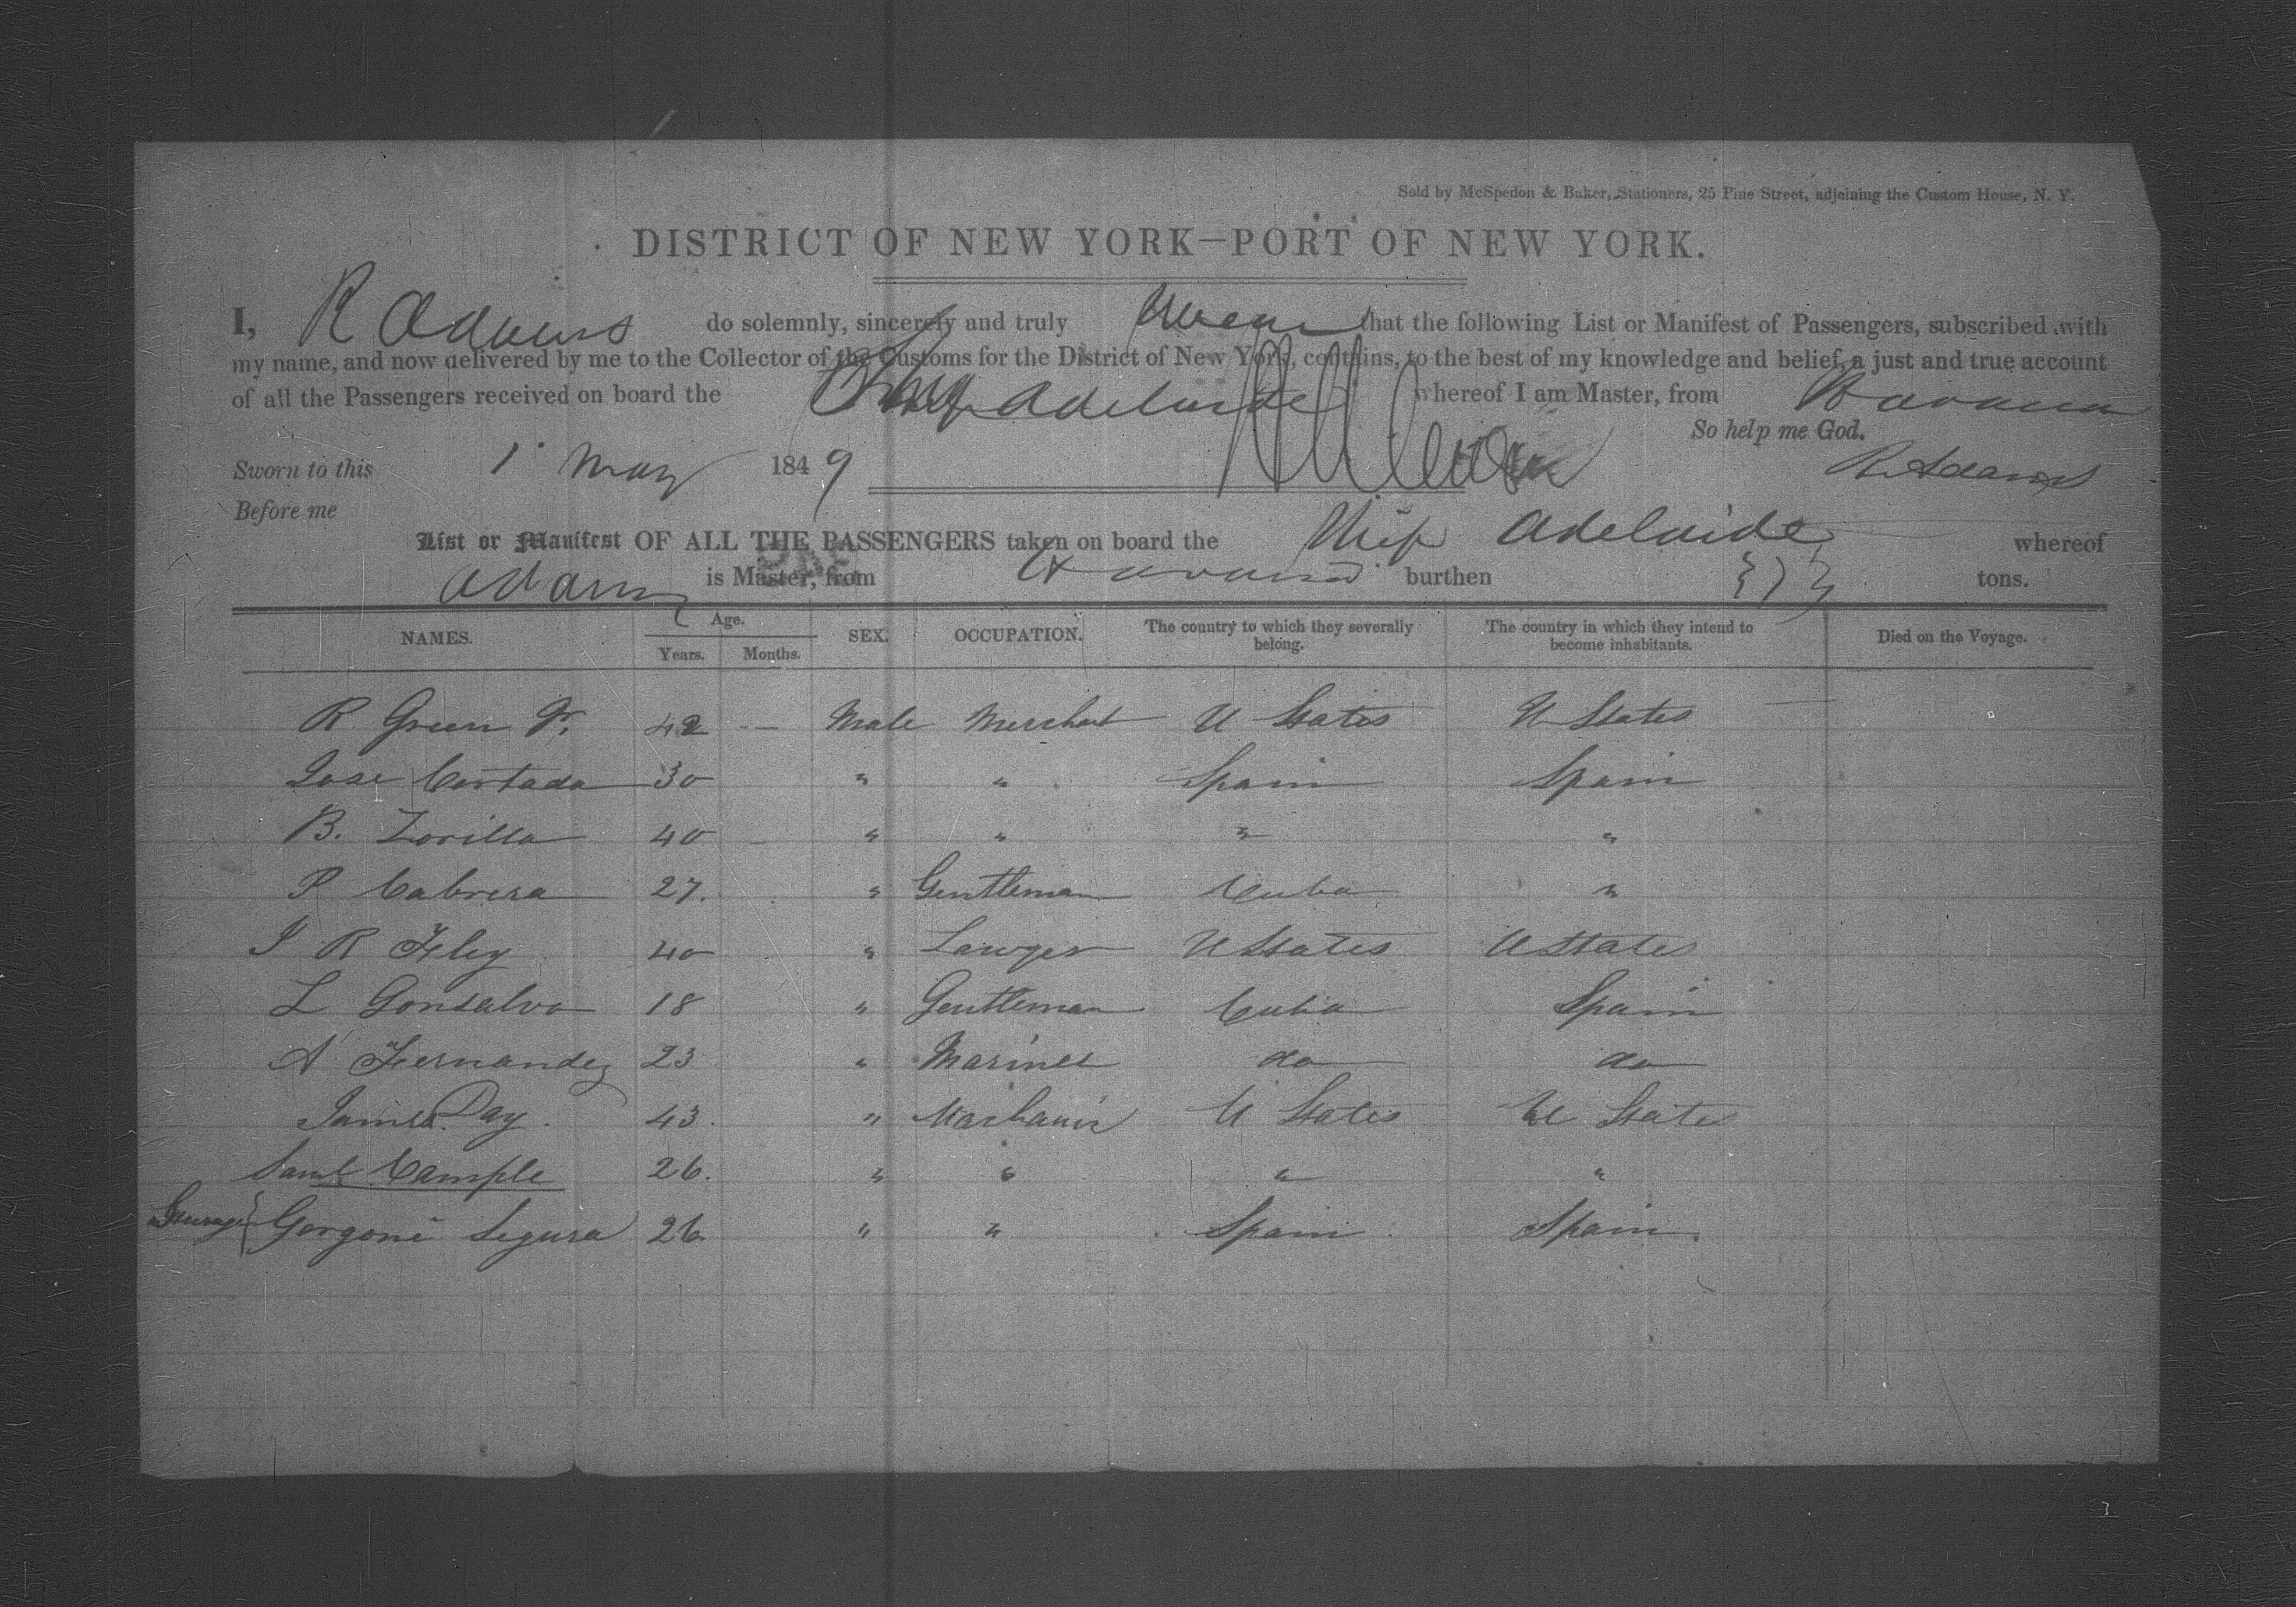 Sold by McSpedon & Baker, Stationers, 25 Pine Street, adjoining the Custom House, N. Y.
DISTRICT OF NEW YORK—PORT OF NEW YORK.
I, R Adams do solemnly, sincerely and truly Swear that the following List or Manifest of Passengers, subscribed with
my name, and now delivered by me to the Collector of the Customs for the District of New York, contains, to the best of my knowledge and belief, a just and true account
of all the Passengers received on board the Ship Adelaide whereof I am Master, from Havana
So help me God.
Sworn to this 1 May 1849 R Adams
Before me
List or Manifest OF ALL THE PASSENGERS taken on board the Ship Adelaide whereof
Adams is Master, from Havana burthen tons.
NAMES. Age. Years. Months. SEX. OCCUPATION. The country to which they severally belong. The country in which they intend to become inhabitants. Died on the Voyage.
R Green Jr. 42 — Male Merchant U States U States
Jose Cortada 30 " " Spain Spain
B. Zorilla 40 " " " "
P Cabrera 27. " Gentleman Cuba "
J R Fley 40 " Lawyer U States U States
L Gonsalvo 18 " Gentleman Cuba Spain
A Fernandez 23 " Mariner do do
James Day. 43. " Mechanic U States U States
Saml Cample 26. " " " "
Steerage { Gorgoni Segura 26 " " Spain Spain.